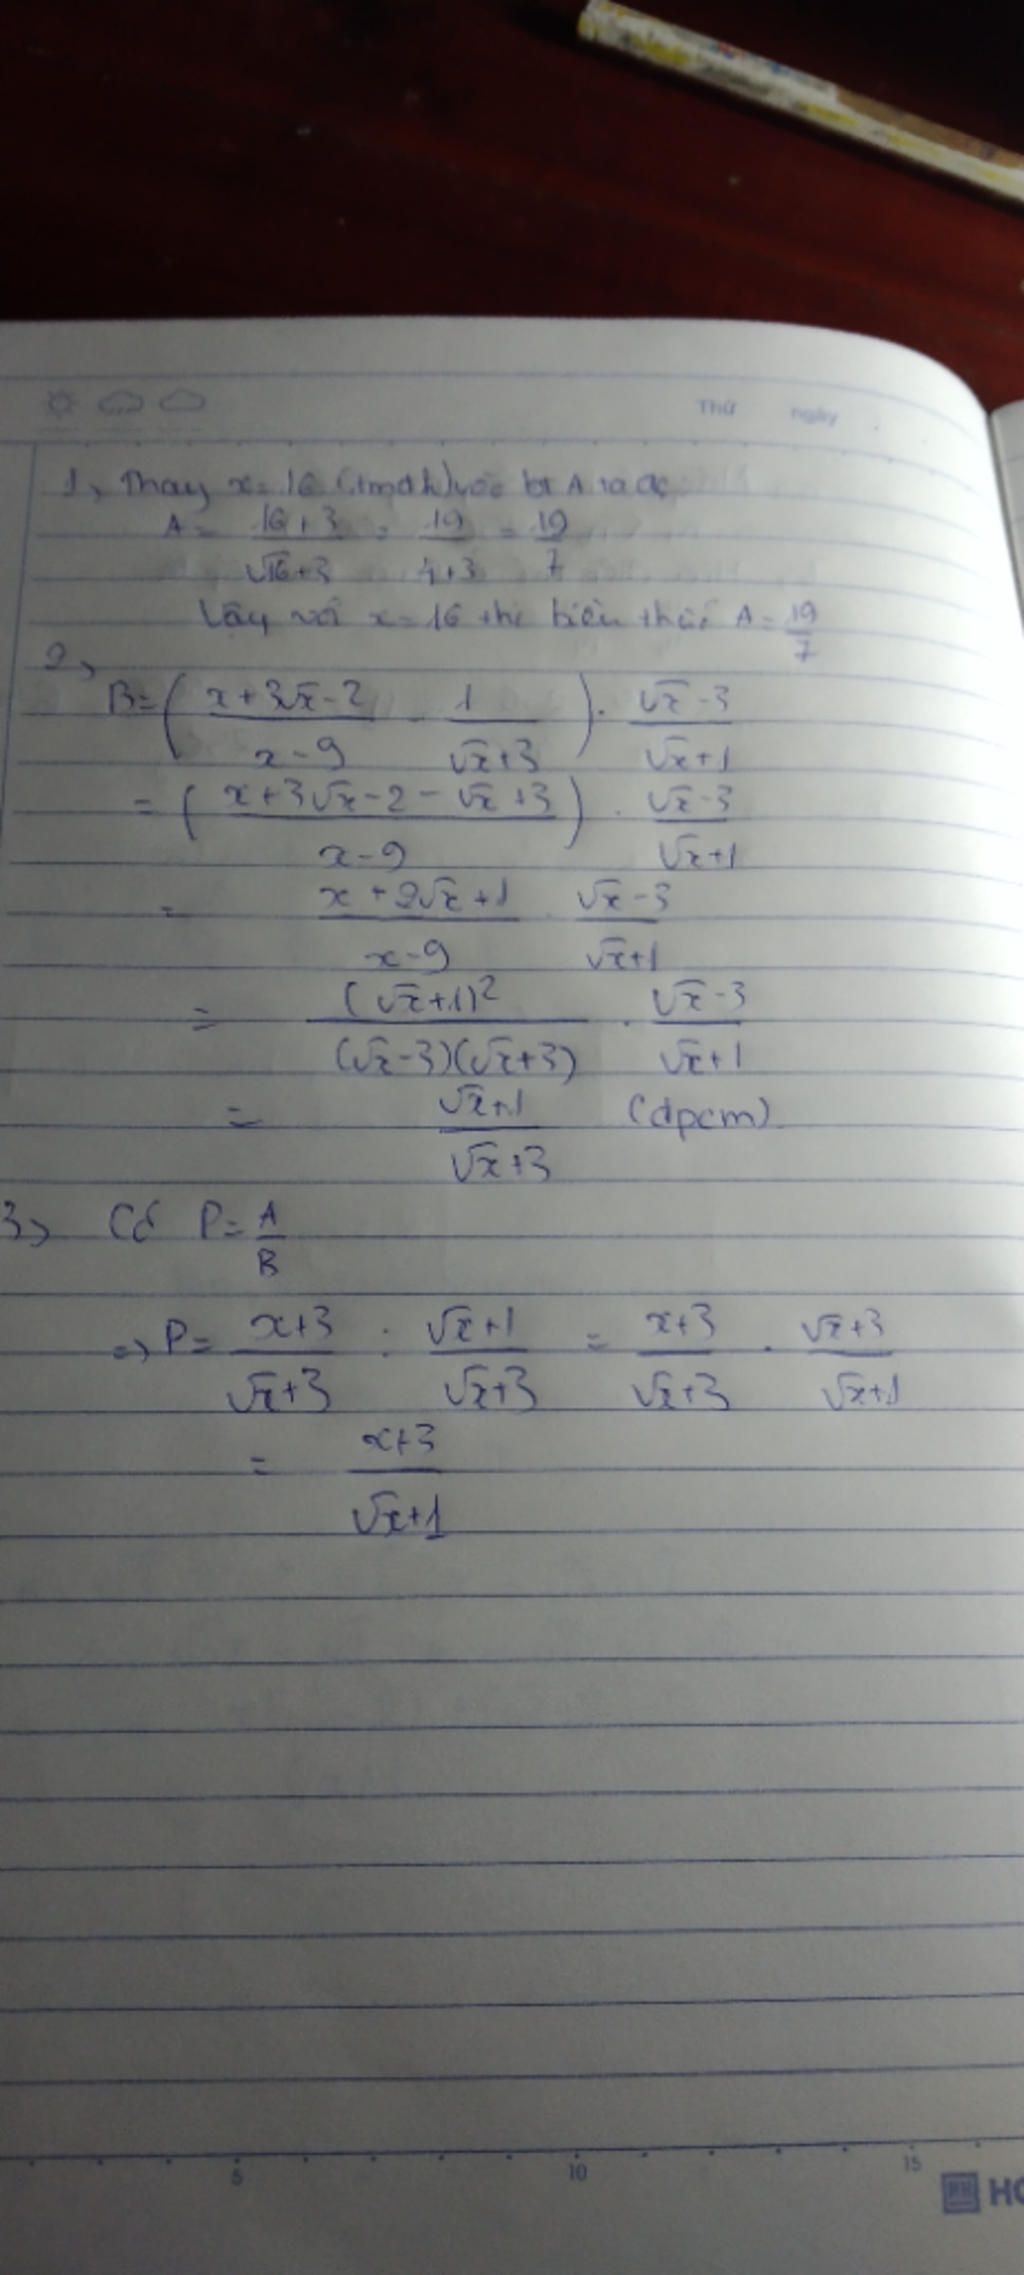 Thứ ngày
1, Thay x = 16 (tmđk) vào bt A ta đc
A = (16+3)/(√16+3) = 19/(4+3) = 19/7
Vậy với x = 16 thì biểu thức A = 19/7
2,
B = ( (x+3√x-2)/(x-9) - 1/(√x+3) ) . (√x-3)/(√x+1)
= ( (x+3√x-2-√x+3)/(x-9) ) . (√x-3)/(√x+1)
= (x+2√x+1)/(x-9) . (√x-3)/(√x+1)
= (√x+1)²/((√x-3)(√x+3)) . (√x-3)/(√x+1)
= (√x+1)/(√x+3) (dpcm)
3, Có P = A/B
=> P = (x+3)/(√x+3) : (√x+1)/(√x+3) = (x+3)/(√x+3) . (√x+3)/(√x+1)
= (x+3)/(√x+1)
5 10 15
HO